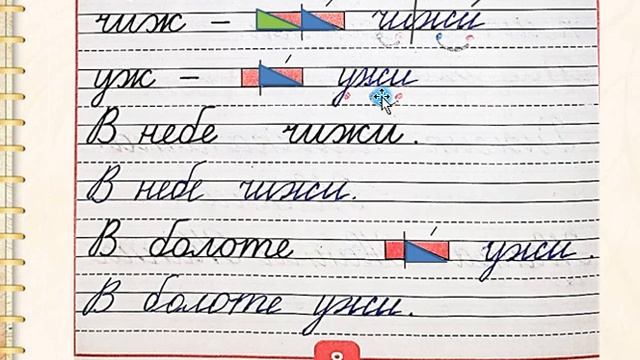 чиж – чижи
уж – ужи
В небе чижи.
В небе чижи.
В болоте ужи.
В болоте ужи.